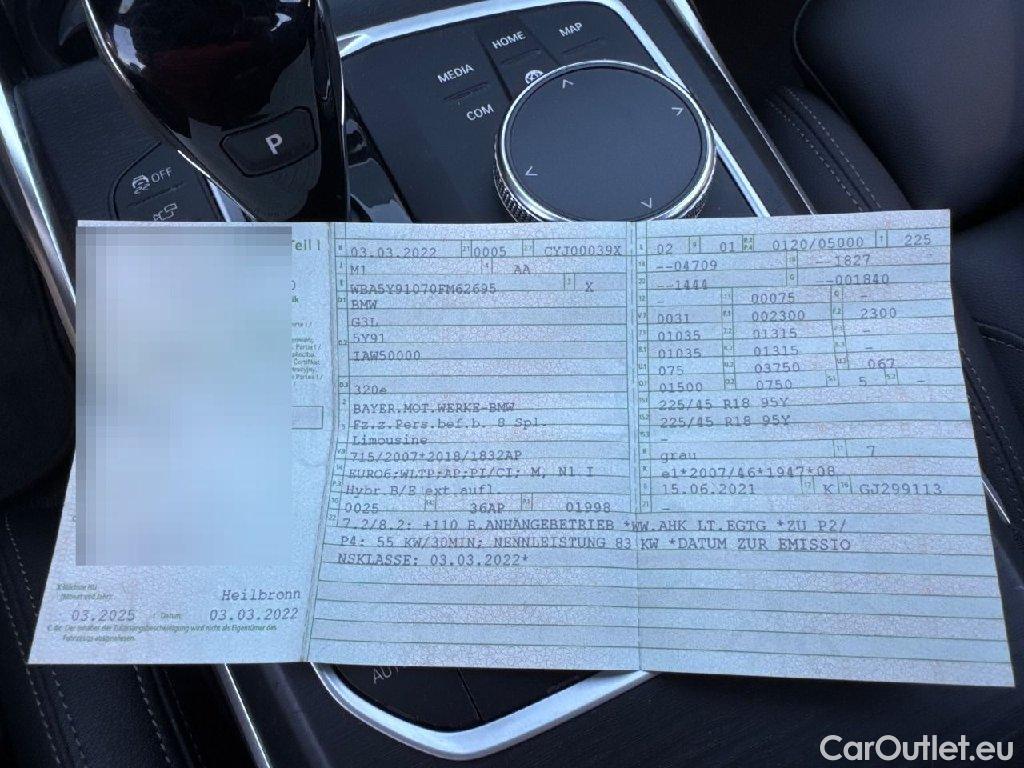 HOME
MAP
MEDIA
COM
P
OFF
Teil I
03.03.2022 0005 CYJ00039X
M1 AA
WBA5Y91070FM62695 X
BMW
G3L
5Y91
IAW50000
320e
BAYER.MOT.WERKE-BMW
Fz.z.Pers.bef.b. 8 Spl.
Limousine
715/2007*2018/1832AP
EURO6;WLTP;AP;PI/CI; M, N1 I
Hybr.B/E ext.aufl
0025 36AP 01998
02 01 0120/05000 225
--04709 -1827
--1444 -001840
- 00075 -
0031 002300 2300
01035 01315 -
01035 01315 -
075 03750 067
01500 0750 5 -
225/45 R18 95Y
225/45 R18 95Y
-
grau 7
e1*2007/46*1947*08
15.06.2021 K GJ299113
-
7.2/8.2: +110 B.ANHÄNGEBETRIEB *WW.AHK LT.EGTG *ZU P2/
P4: 55 KW/30MIN; NENNLEISTUNG 83 KW *DATUM ZUR EMISSIO
NSKLASSE: 03.03.2022*
Heilbronn
03.2025 Datum: 03.03.2022
Der Inhaber der Zulassungsbescheinigung wird nicht als Eigentümer des
Fahrzeugs ausgewiesen.
AUT
CarOutlet.eu